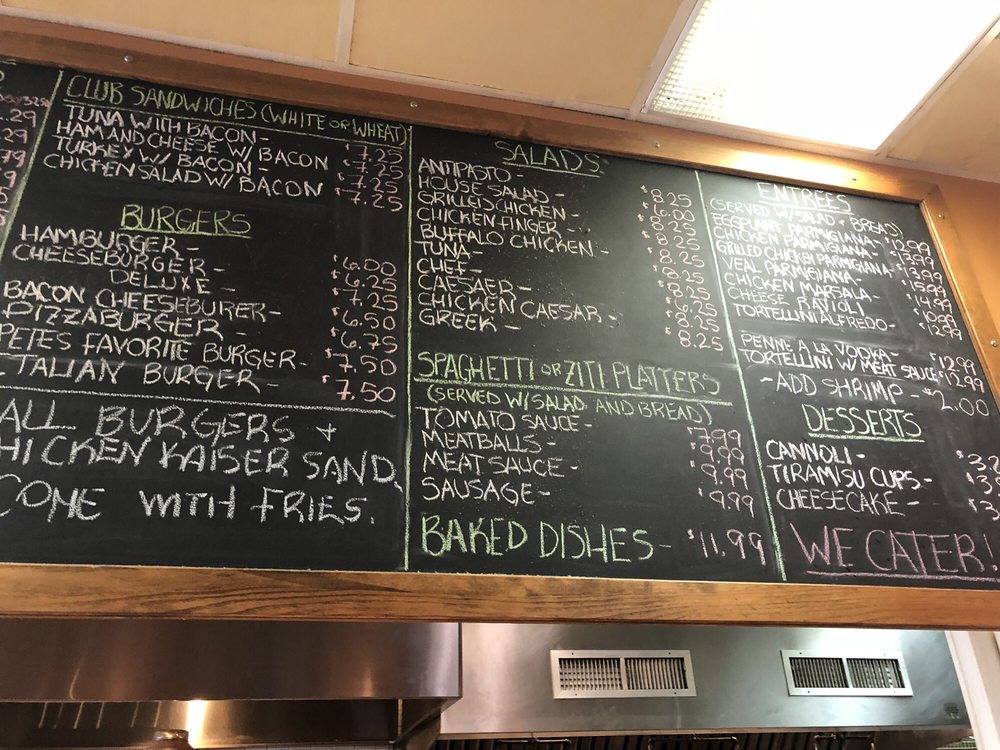 .29
.29
.79
CLUB SANDWICHES (WHITE OR WHEAT)
TUNA WITH BACON - $7.25
HAM AND CHEESE W/ BACON $7.25
TURKEY W/ BACON - $7.25
CHICKEN SALAD W/ BACON $7.25
BURGERS
HAMBURGER - $6.00
CHEESEBURGER - $6.25
DELUXE - $7.25
BACON CHEESEBURER - $6.50
PIZZABURGER - $6.75
PETES FAVORITE BURGER - $7.50
ITALIAN BURGER - $7.50
ALL BURGERS +
CHICKEN KAISER SAND.
COME WITH FRIES.
SALADS
ANTIPASTO - $8.25
HOUSE SALAD - $6.00
GRILLED CHICKEN - $8.25
CHICKEN FINGER - $8.25
BUFFALO CHICKEN - 8.25
TUNA - $8.25
CHEF - $8.25
CAESAER - $8.25
CHICKEN CAESAR - $8.25
GREEK - 8.25
SPAGHETTI OR ZITI PLATTERS
(SERVED W/ SALAD AND BREAD)
TOMATO SAUCE - $7.99
MEATBALLS - $9.99
MEAT SAUCE - $9.99
SAUSAGE - $9.99
BAKED DISHES - $11.99
ENTREES
(SERVED W/ SALAD + BREAD)
EGGPLANT PARMIGIANA - $12.99
CHICKEN PARMIGIANA - $13.99
GRILLED CHICKEN PARMIGIANA - $13.99
VEAL PARMIGIANA - $15.99
CHICKEN MARSALA - $14.99
CHEESE RAVIOLI $10.99
TORTELLINI ALFREDO - $12.99
PENNE A LA VODKA - $12.99
TORTELLINI W/ MEAT SAUCE $12.99
- ADD SHRIMP - $2.00
DESSERTS
CANNOLI - $3.2
TIRAMISU CUPS - $3.
CHEESECAKE - $3.
WE CATER!